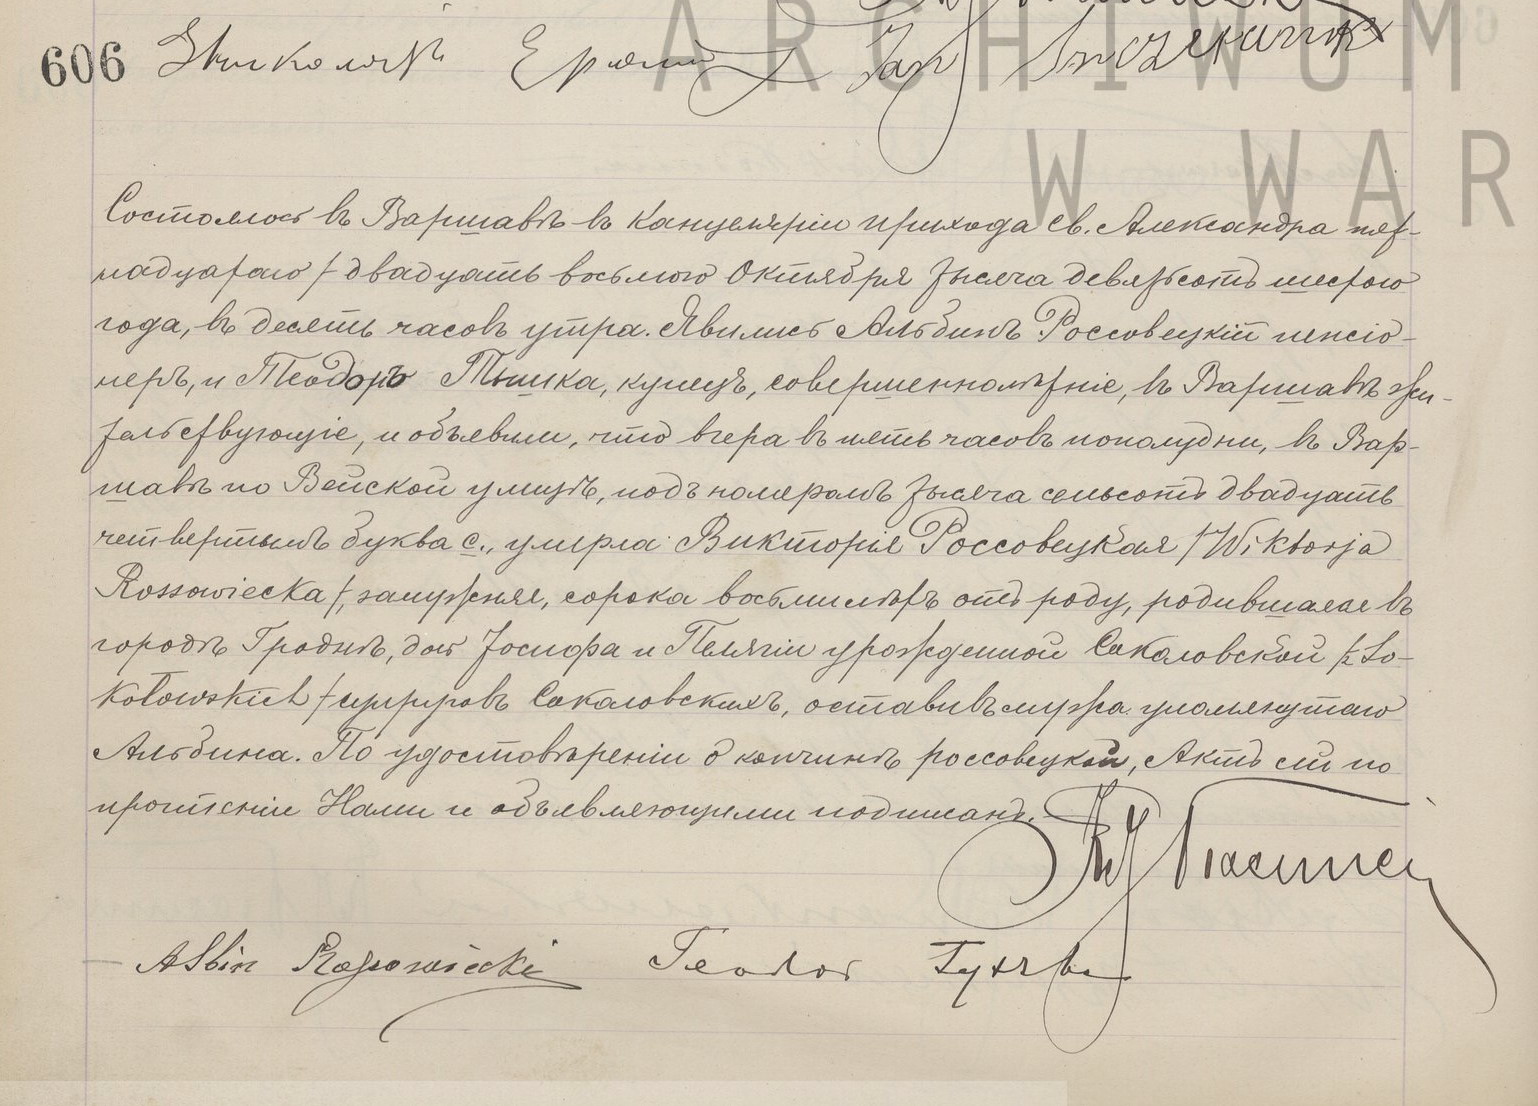 606
ARCHIWUM
Jan
W WAR
Состоялось въ Варшавѣ въ Канцеляріи прихода св. Александра пят-
надцатаго / двадцать восьмого Октября тысяча девятьсотъ шестого
года, въ десять часовъ утра. Явились Альбинъ Россовецкій пенсіо-
неръ, и Теодоръ Тышка, купецъ, совершеннолѣтніе, въ Варшавѣ жи-
тельствующіе, и объявили, что вчера въ пять часовъ пополудни, въ Вар-
шавѣ по Вейской улицѣ, подъ номеромъ тысяча семьсотъ двадцать
четвертымъ буква с., умерла Викторія Россовецкая /Wiktorja
Rossowiecka/, замужняя, сорока восьми лѣтъ отъ роду, родившаяся въ
городѣ Гроднѣ, дочь Іосифа и Пелагіи урожденной Соколовской /z So-
kołowskich/ супруговъ Соколовскихъ, оставивъ мужа упомянутаго
Альбина. По удостовѣреніи о кончинѣ россовецкой, Актъ сей по
прочтеніи Нами и объявляющими подписанъ.
Albin Rossowiecki Teodor